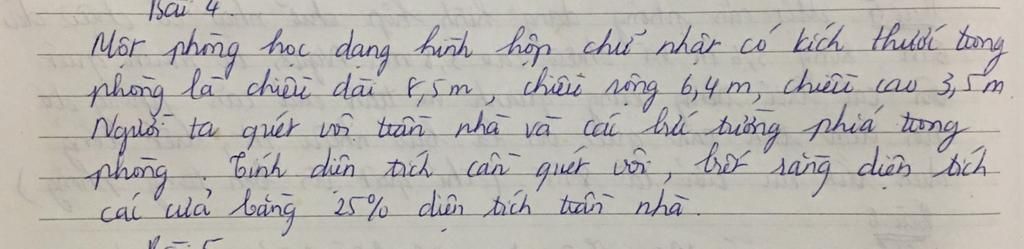 Bài 4
Một phòng học dạng hình hộp chữ nhật có kích thước trong
phòng là chiều dài 8,5m, chiều rộng 6,4m, chiều cao 3,5m
Người ta quét vôi trần nhà và các bức tường phía trong
phòng. Tính diện tích cần quét vôi, biết rằng diện tích
các cửa bằng 25% diện tích trần nhà.